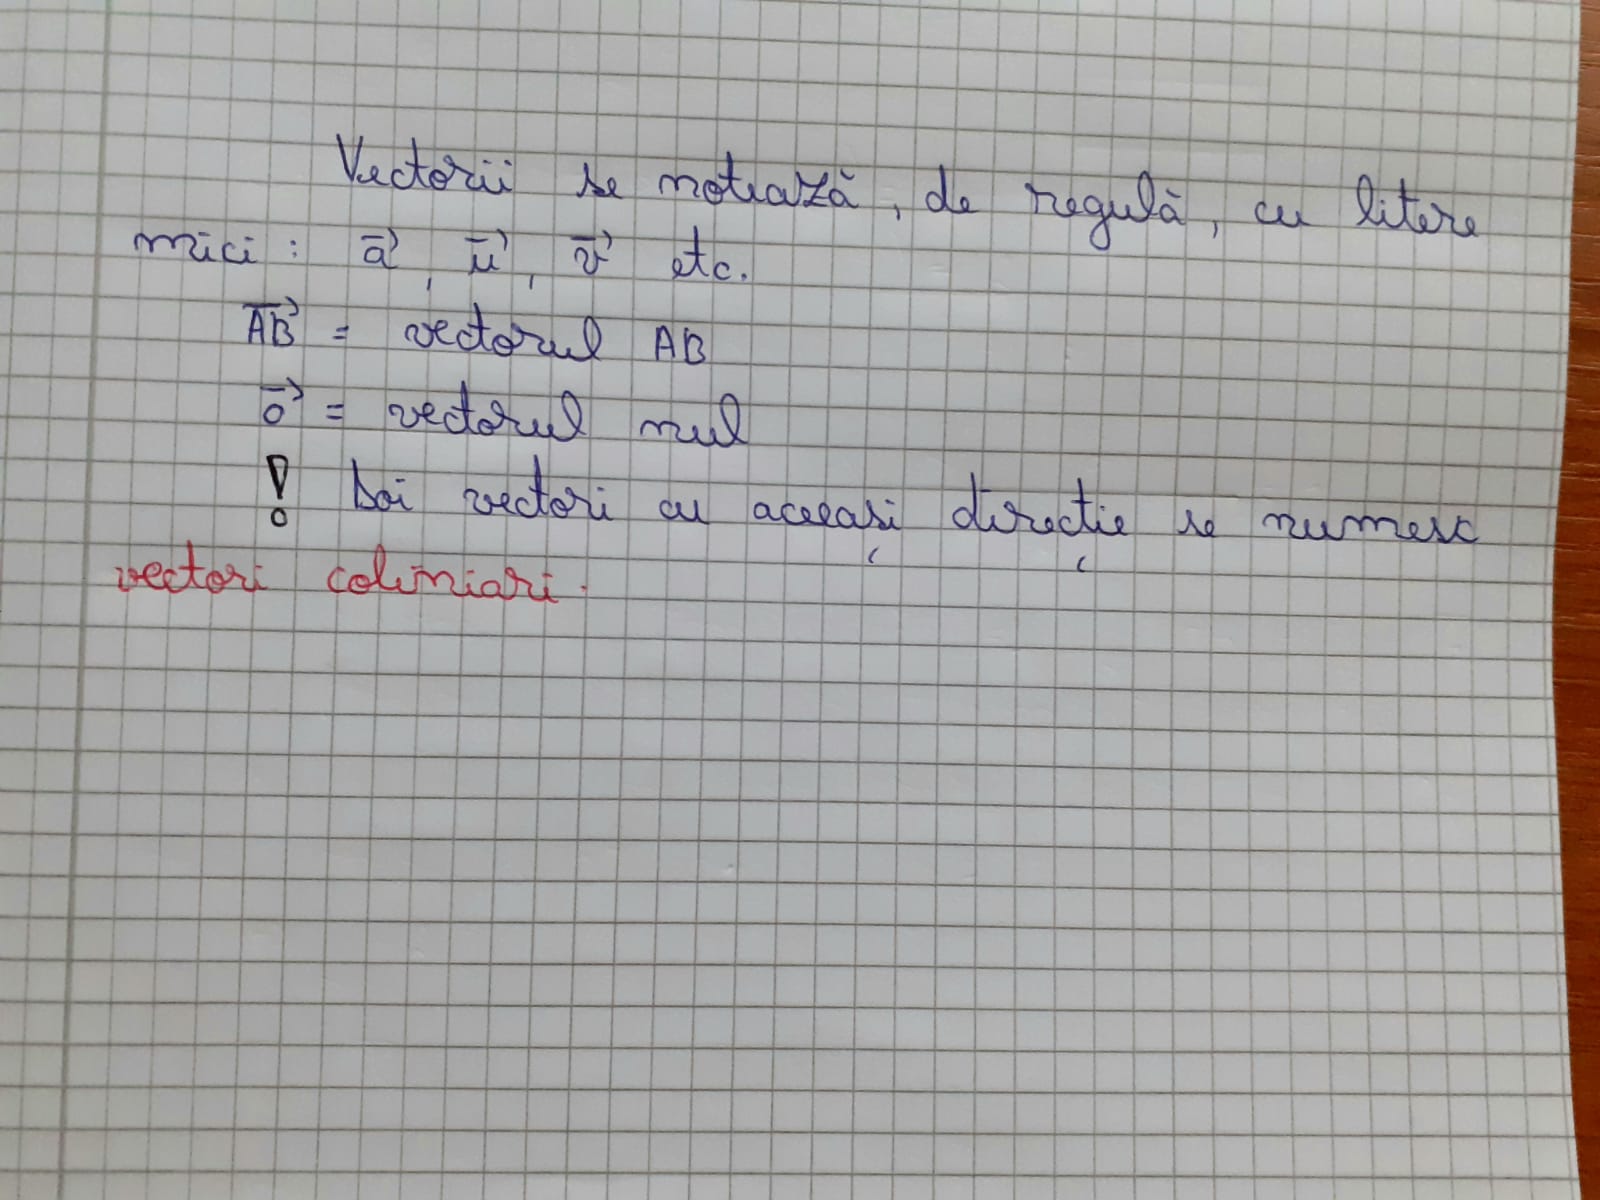 Vectorii se notează, de regulă, cu litere
mici: a⃗, u⃗, v⃗ etc.
AB⃗ = vectorul AB
o⃗ = vectorul nul
! Doi vectori cu aceeași direcție se numesc
vectori coliniari.